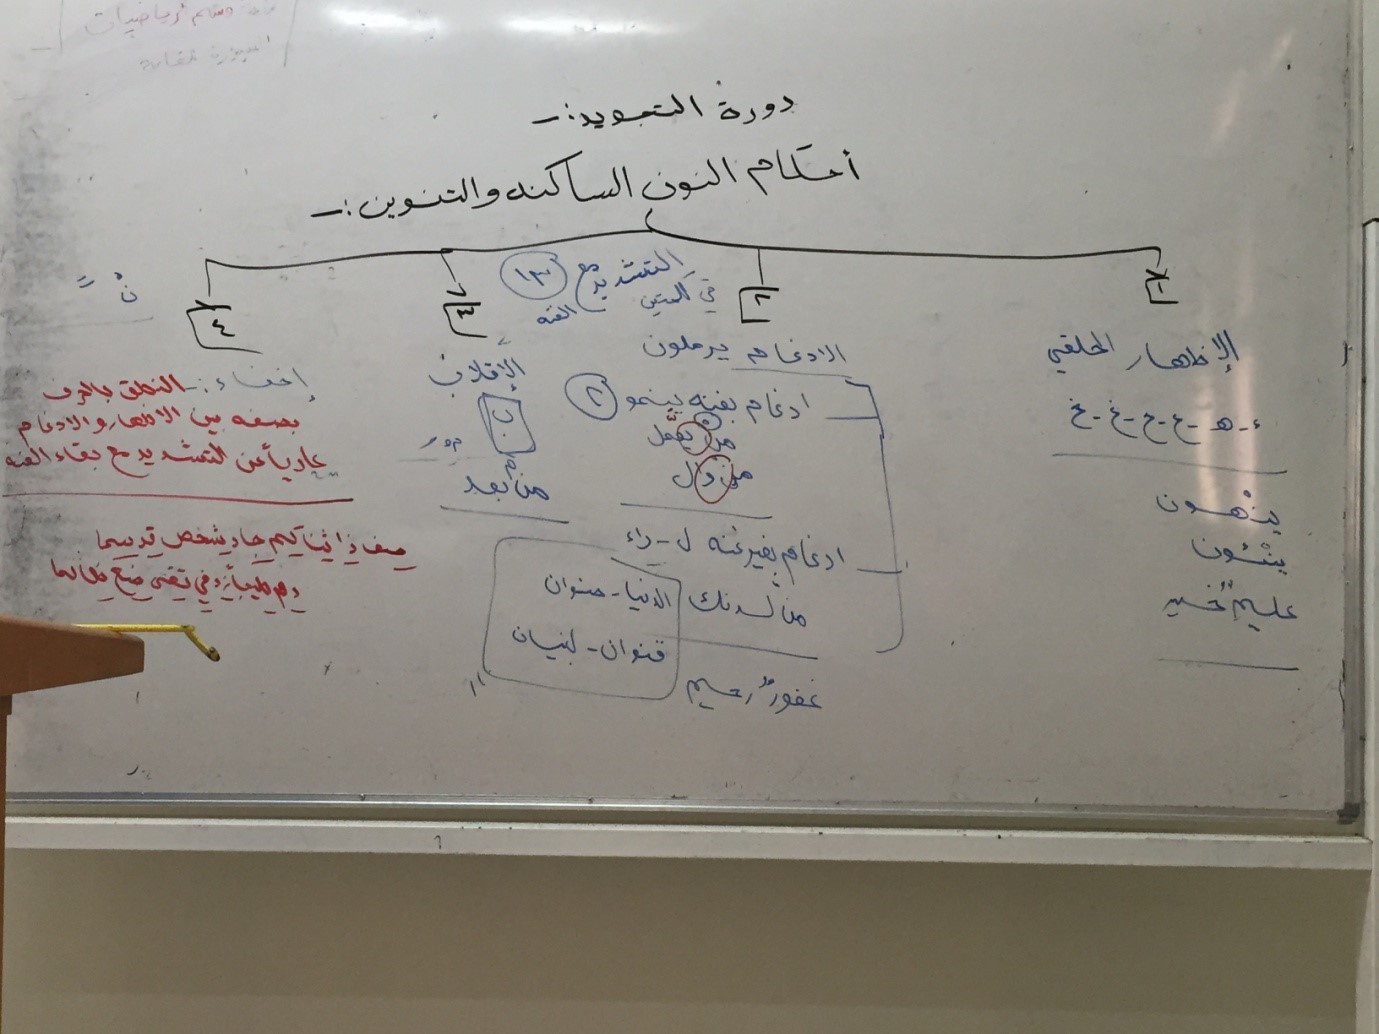 دورة التجويد:-
أحكام النون الساكنه والتنوين:-
١
الإظهار الحلقي
ء - هـ - ع - ح - غ - خ
ينْهون
ينْئون
عليمٌ خبير
٢
التشديد مع
في
الغنه
١٣
الادغام يرملون
ادغام بغنه ينمو ٢
من يقول
من وال
ادغام بغير غنه ل - راء
من لدنك
غفورٌ رحيم
الدنيا - صنوان
قنوان - بنيان
٣
الإقلاب
ب
من بعد
نْ ً
٤
إخفاء:- النطق بالحرف
بصفه بين الاظهار والادغام
عارياً عن التشديد مع بقاء الغنه
صف ذا ثنا كم جاد شخص قد سما
دم طيباً زد في تقى ضع ظالما